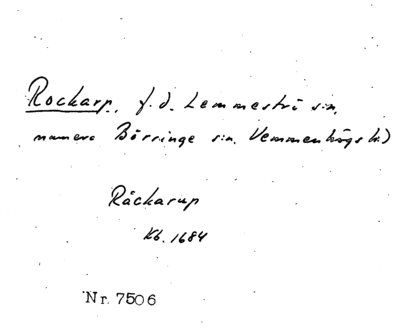 Rockarp, f.d. Lemmeströ sn,
numera Börringe sn. Vemmenhögs hd
Råckarup
Kb. 1684
Nr. 7506